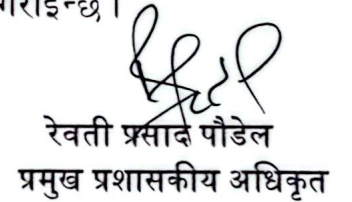 गराइन्छ।
रेवती प्रसाद पौडेल
प्रमुख प्रशासकीय अधिकृत